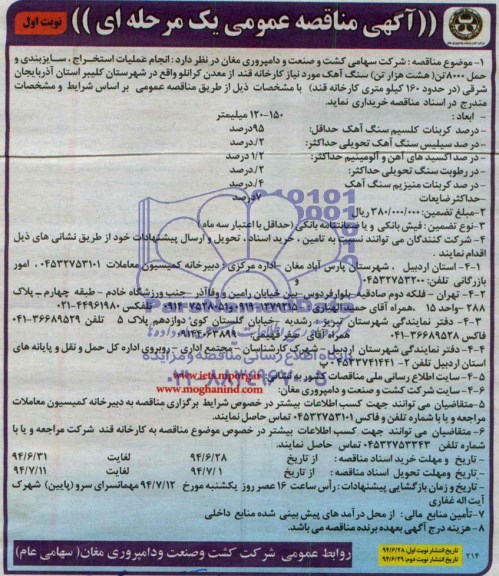 ((آگهی مناقصه عمومی یک مرحله ای))
نوبت اول
۱- موضوع مناقصه : شرکت سهامی کشت و صنعت و دامپروری مغان در نظر دارد : انجام عملیات استخراج ، سایزبندی و
حمل ۸۰۰۰ تن( هشت هزار تن) سنگ آهک مورد نیاز کارخانه قند از معدن کرانلو واقع در شهرستان کلیبر استان آذربایجان
شرقی (در حدود ۱۶۰ کیلو متری کارخانه قند) با مشخصات ذیل از طریق مناقصه عمومی بر اساس شرایط و مشخصات
مندرج در اسناد مناقصه خریداری نماید.
- ابعاد : ۱۵۰-۱۲۰ میلیمتر
- درصد کربنات کلسیم سنگ آهک حداقل: ۹۵درصد
- درصد سیلیس سنگ آهک تحویلی حداکثر: ۲/درصد
- درصد اکسید های آهن و آلومینیم حداکثر: ۱/۲ درصد
- دررطوبت سنگ تحویلی حداکثر: ۲/درصد
- درصد کربنات منیزیم سنگ آهک ۴/درصد
حداکثر ضایعات ۷درصد
۲-مبلغ تضمین: ۳۸۰/۰۰۰/۰۰۰ ریال
۳- نوع تضمین : فیش بانکی و یا ضمانتنامه بانکی (حداقل با اعتبار سه ماه)
۴- شرکت کنندگان می توانند نسبت به تامین ، خرید اسناد ، تحویل و ارسال پیشنهادات خود از طریق نشانی های ذیل
اقدام نمایند .
۴-۱- استان اردبیل ، شهرستان پارس آباد مغان -اداره مرکزی ، دبیرخانه کمیسیون معاملات ۰۴۵۳۲۷۵۳۱۰۱ ، امور
بازرگانی تلفن: ۰۴۵۳۲۷۵۳۲۰۰ و
۴-۲- تهران - فلکه دوم صادقیه -بلوارفردوس-بین خیابان رامین و وفاآذر -جنب ورزشگاه خادم - طبقه چهارم - پلاک
۲۸۸ -واحد ۱۵ .همراه آقای حمید الهیاری تلفکس ۴۴۹۶۱۹۸۰-۰۲۱
۴-۳- دفتر نمایندگی شهرستان تبریز - رشدیه -خیابان گلستان کوی دوازدهم پلاک ۵ تلفن ۳۶۶۸۹۵۳۹-۰۴۱
فاکس ۳۶۶۸۹۵۲۸-۰۴۱ همراه آقای خبیر فهیمی
۴-۴- دفتر نمایندگی شهرستان اردبیل - شهرک کارشناسان - مجتمع اداری - روبروی اداره کل حمل و نقل و پایانه های
استان اردبیل تلفن
۴-۵- سایت اطلاع رسانی ملی مناقصات کشور به نشانی:
۴-۶- سایت شرکت کشت و صنعت و دامپروری مغان: www.moghanind.com
۵-متقاضیان می توانند جهت کسب اطلاعات بیشتر در خصوص شرایط برگزاری مناقصه به دبیرخانه کمیسیون معاملات
مراجعه و یا با شماره تلفن و فاکس ۰۴۵۳۲۷۵۳۱۰۱ تماس حاصل نمایند.
۶-متقاضیان می توانند جهت کسب اطلاعات بیشتر در خصوص موضوع مناقصه به کارخانه قند شرکت مراجعه و یا با
شماره تلفن ۰۴۵۳۲۷۵۳۳۴۳ تماس حاصل نمایند.
- تاریخ و مهلت خرید اسناد مناقصه : از تاریخ ۹۴/۶/۲۸ لغایت ۹۴/۶/۳۱
- تاریخ ومهلت تحویل اسناد مناقصه : از تاریخ ۹۴/۷/۱ لغایت ۹۴/۷/۱۱
- تاریخ و زمان بازگشایی پیشنهادات : رأس ساعت ۱۶ عصر روز یکشنبه مورخ ۹۴/۷/۱۲ مهمانسرای سرو (پایین) شهرک
آیت اله غفاری
۷- تأمین منابع مالی : از محل درآمد های پیش بینی شده منابع داخلی
۸- هزینه درج آگهی بعهده برنده مناقصه می باشد.
۲۱۴
تاریخ انتشار نوبت اول: ۹۴/۶/۲۸
تاریخ انتشار نوبت دوم: ۹۴/۶/۲۹
روابط عمومی شرکت کشت وصنعت ودامپروری مغان( سهامی عام)
پایگاه اطلاع رسانی مناقصه و مزایده